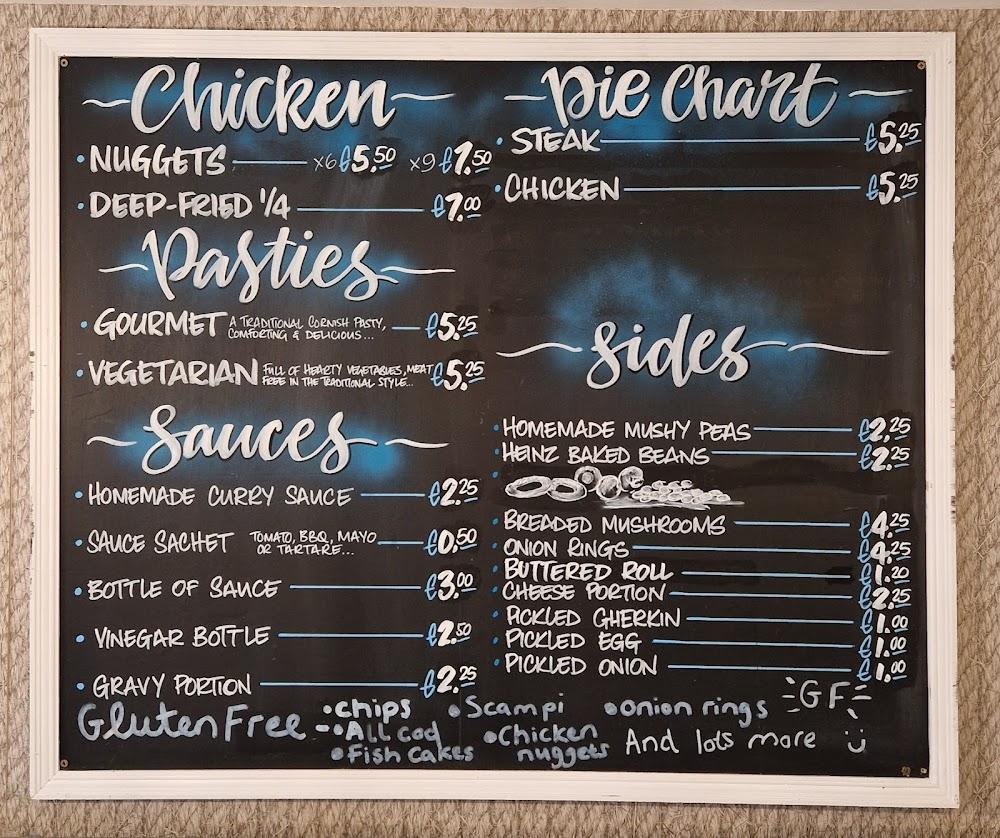 Chicken
• NUGGETS x6 £5.50 x9 £7.50
• DEEP-FRIED 1/4 £7.00
Pasties
• GOURMET A TRADITIONAL CORNISH PASTY, £5.25
COMFORTING & DELICIOUS...
• VEGETARIAN FULL OF HEARTY VEGETABLES, MEAT £5.25
FREE IN THE TRADITIONAL STYLE...
Sauces
• HOMEMADE CURRY SAUCE £2.25
• SAUCE SACHET TOMATO, BBQ, MAYO £0.50
OR TARTARE...
• BOTTLE OF SAUCE £3.00
• VINEGAR BOTTLE £2.50
• GRAVY PORTION £2.25
Pie Chart
• STEAK £5.25
• CHICKEN £5.25
Sides
• HOMEMADE MUSHY PEAS £2.25
• HEINZ BAKED BEANS £2.25
• BREADED MUSHROOMS £4.25
• ONION RINGS £4.25
• BUTTERED ROLL £1.20
• CHEESE PORTION £2.25
• PICKLED GHERKIN £1.00
• PICKLED EGG £1.00
• PICKLED ONION £1.00
Gluten Free • chips • Scampi • Onion rings GF
• All cod • Chicken And lots more
• Fish cakes nuggets